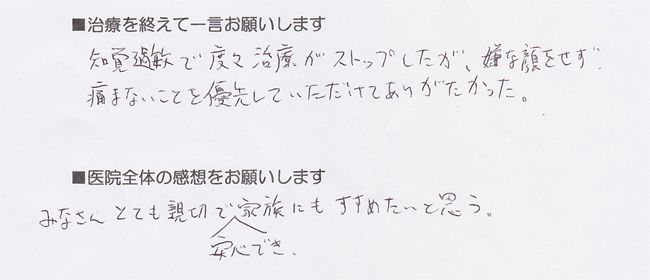 ■治療を終えて一言お願いします
知覚過敏で度々治療がストップしたが、嫌な顔をせず
痛まないことを優先していただけてありがたかった。
■医院全体の感想をお願いします
みなさん とても親切で家族にも すすめたいと思う。
安心でき、